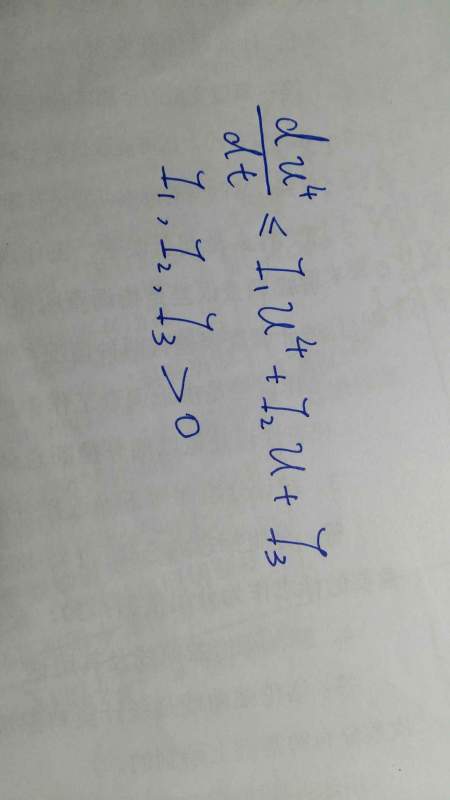 du⁴/dt ≤ I₁u⁴ + I₂u + I₃
I₁, I₂, I₃ > 0